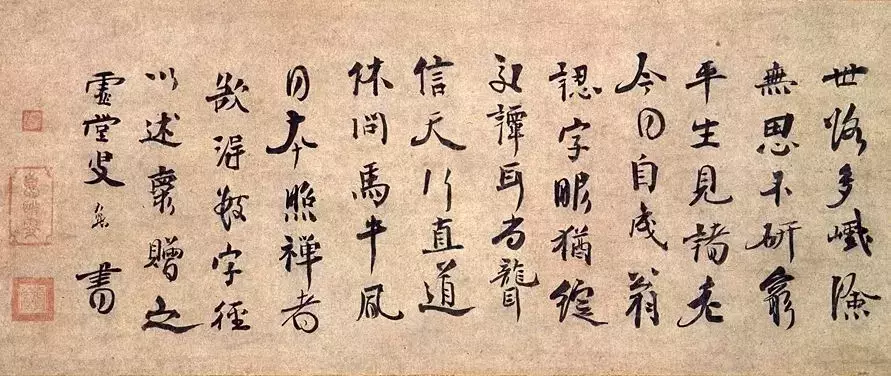 世路多巇險
無思不研窮
平生見諸老
今日自成翁
認字眼猶綻
交譚耳尚聾
信天行直道
休問馬牛風
日本照禅者
欲得數字徑
以述懷贈之
虛堂叟書